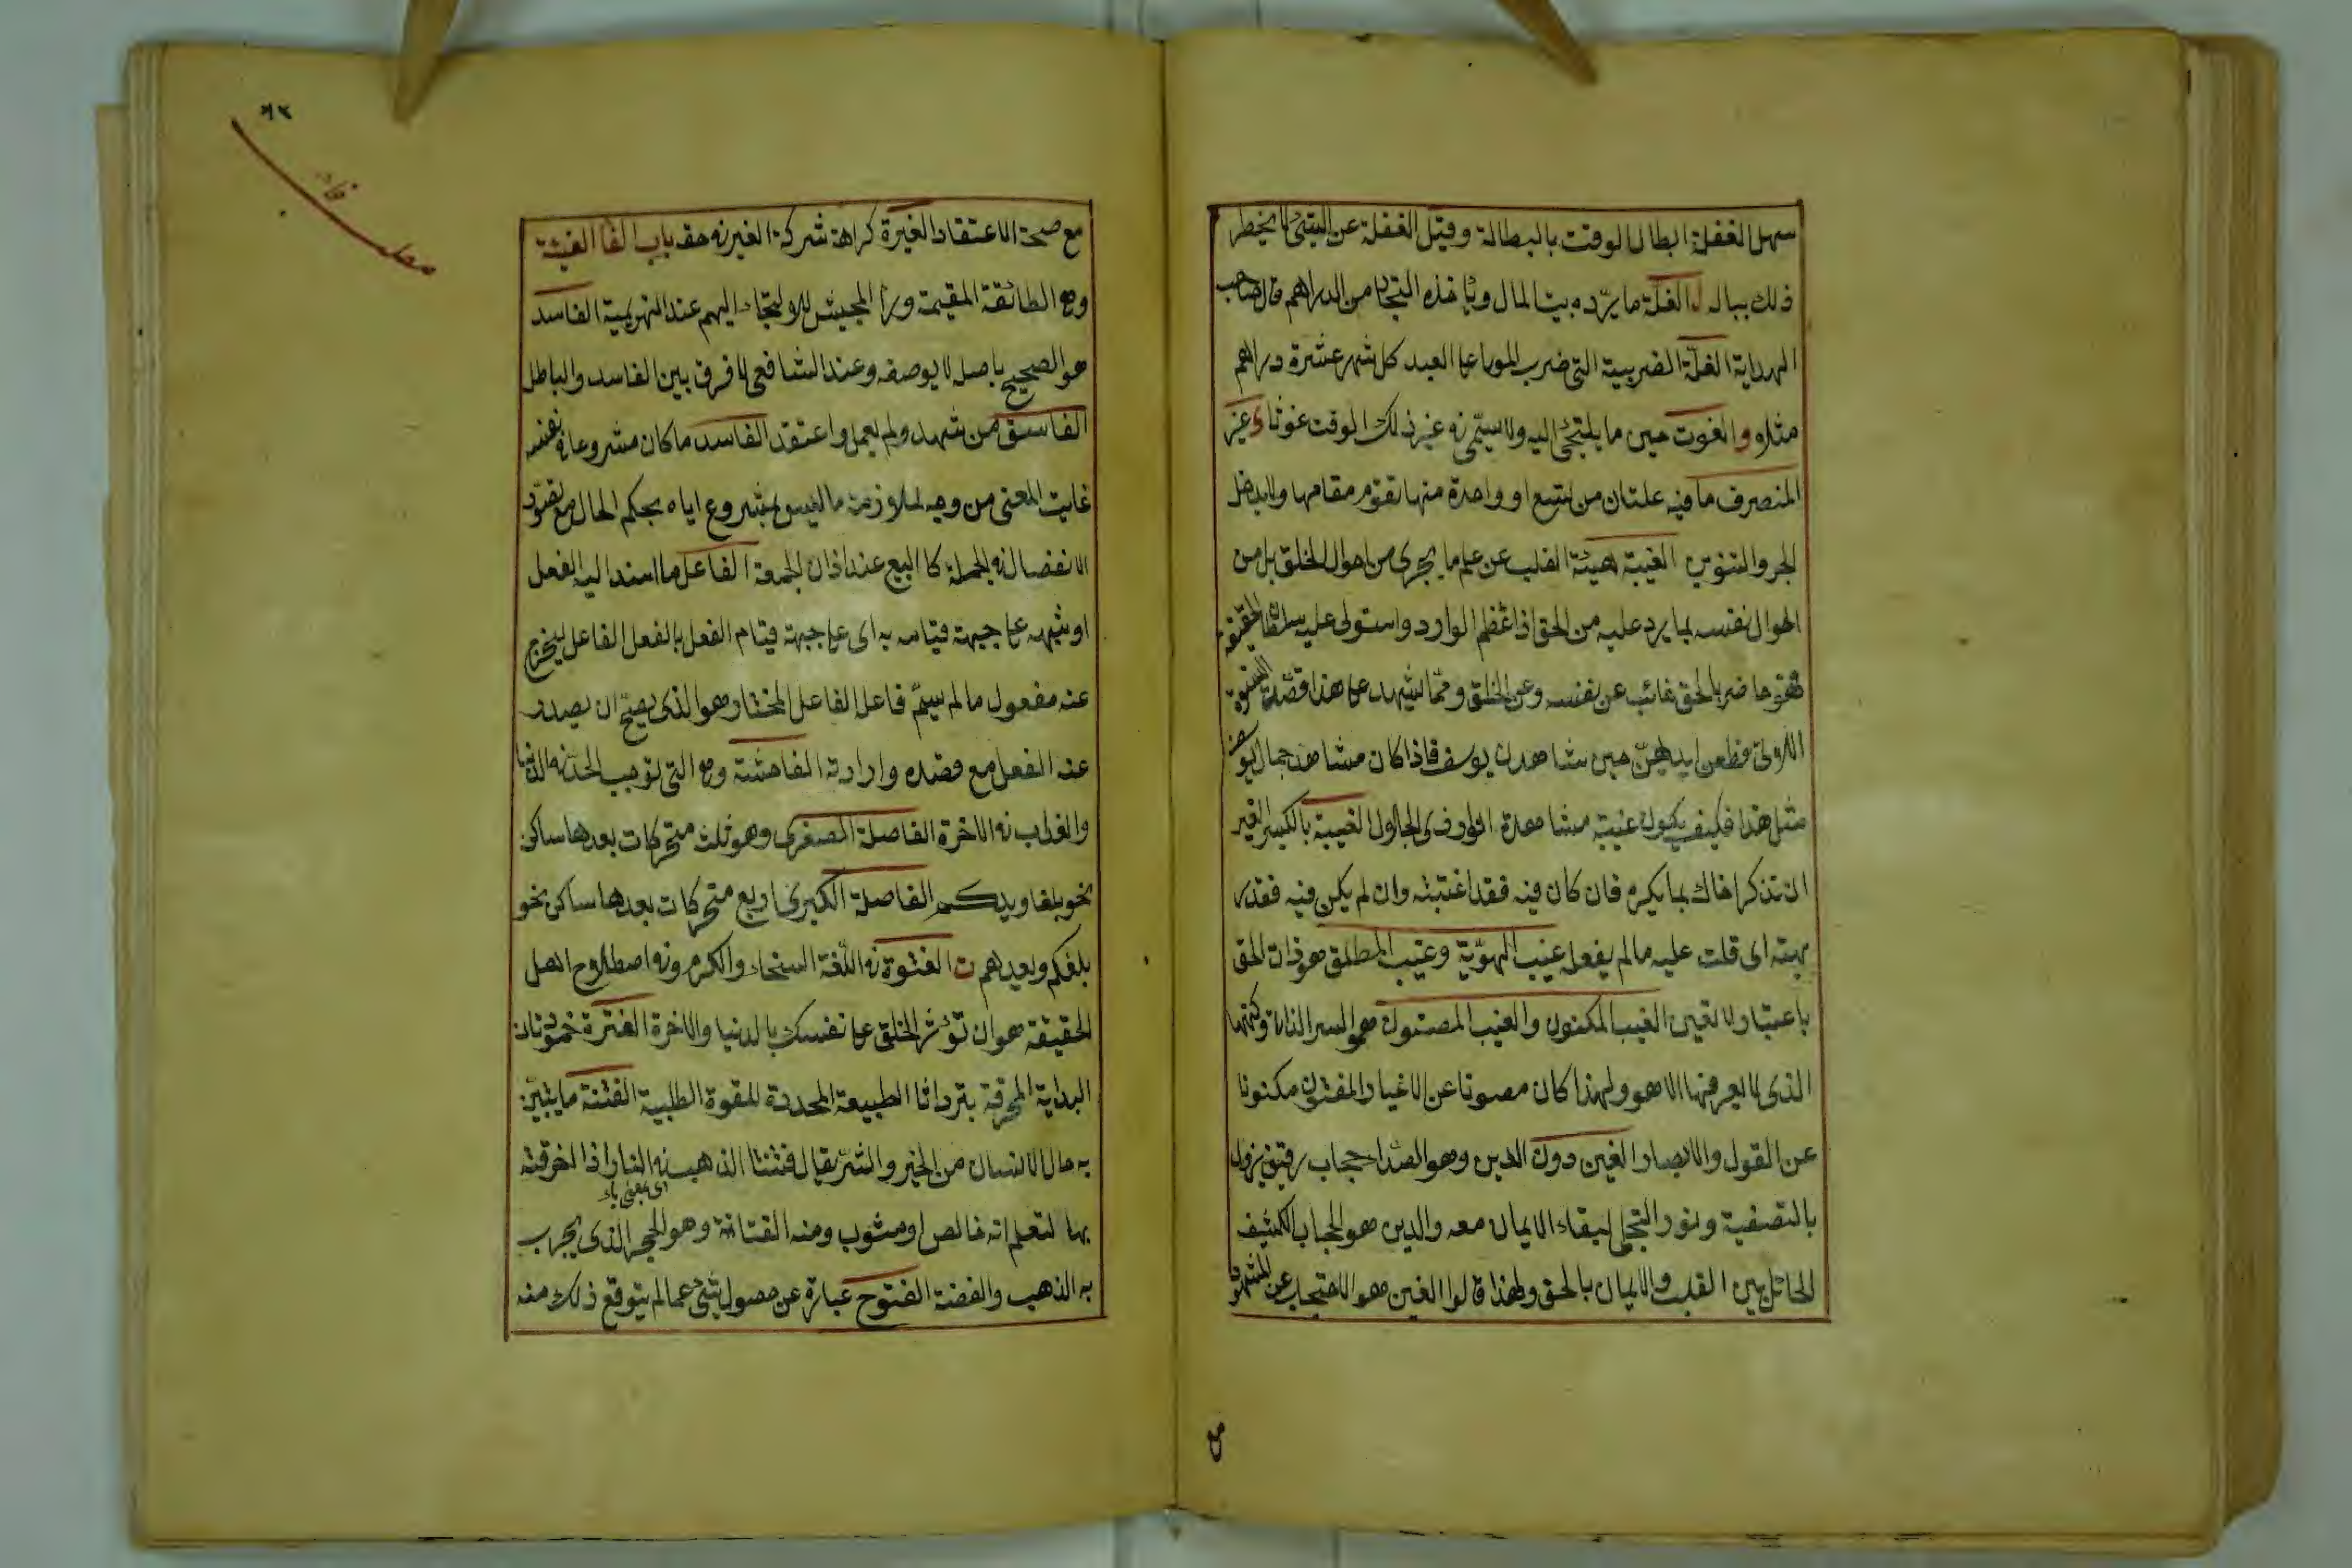 سهل الغفلة ابطال الوقت بالبطالة وقيل الغفلة عن الشئ لا يخطر
ذلك بباله ل الغلة ما يرده بيت المال وياخذه التجار من الدراهم قال صاحب
الهداية الغلة الضريبية التى ضرب المولى على العبد كل شهر عشرة دراهم
مثلا و الغوث حين ما يلتجئ اليه ولا يسمى فى غير ذلك الوقت غوثا ى غير
المنصرف ما فيه علتان من تسع او واحدة منها تقوم مقامها ولا يدخل
الجر والتنوين الغيبة هيئة القلب عن علم ما يجرى من احوال الخلق بل من
احوال نفسه بما يرد عليه من الحق اذا عظم الوارد واستولى عليه سلطان الحقيقة
فهو حاضر بالحق غائب عن نفسه وعن الخلق ومما يشهد على هذا قصة النسوة
اللاتى قطعن ايديهن حين شاهدن يوسف فاذا كان مشاهدة جمال يوسف
مثل هذا فكيف يكون غيبة مشاهدة انوار ذى الجلال الغيبة بالكسر الغير
ان تذكر اخاك بما يكره فان كان فيه فقد اغتبته وان لم يكن فيه فقد
بهته اى قلت عليه ما لم يفعله غيب الهوية وغيب المطلق هو ذات الحق
باعتبار لا تعين الغيب المكنون والغيب المصئون هو السر الذاتى وكنهها
الذى لا يعرفها الا هو ولهذا كان مصونا عن الاغيار المفتون مكنونا
عن القول والابصار الغين دون الدين وهو الصداء حجاب رقيق يزول
بالتصفية ونور التجلى لبقاء الايمان معه والدين هو الحجاب الكثيف
الحائل بين القلب والايمان بالحق ولهذا قالوا الغين هو الاحتجاب عن الشهود
مع
٩٢
مع صحة الاعتقاد الغيرة كراهة شركة الغير فى حقه باب الفا الفيئة
وهى الطائفة المقيمة وراء الجيش للالتجاء اليهم عند الهزيمة الفاسد
هو الصحيح باصله لا بوصفه وعند الشافعى لا فرق بين الفاسد والباطل
الفاسق من شهد ولم يعمل واعتقد الفاسد ما كان مشروعا فى نفسه
غايت المعنى من وجه لملازمة ما ليس بمشروع اياه بحكم الحال مع تصور
الانفصال فى الجملة كا البيع عند اذان الجمعة الفاعل ما اسند اليه الفعل
او شبهه على جهة قيامه به اى على جهة قيام الفعل بالفعل الفاعل ليخرج
عنه مفعول ما لم يسم فاعله الفاعل المختار هو الذى يصح ان يصدر
عنه الفعل مع قصده وارادته الفاحشة وهى التى توجب الحد فى الدنيا
والعذاب فى الاخرة الفاصلة الصغرى وهو ثلث متحركات بعدها ساكن
نحو بلغا ويدكم الفاصلة الكبرى اربع متحركات بعدها ساكن نحو
بلغكم ويعدهم ت الفتوة فى اللغة السخاء والكرم وفى اصطلاح اهل
الحقيقة هو ان تؤثر الخلق على نفسك بالدنيا والاخرة الفترة خمود نار
البداية المحرقة بترد اثار الطبيعة المحددة للقوة الطلبية الفتنة ما يتبين
به حال الانسان من الخير والشر يقال فتنت الذهب فى النار اذا احرقته
بها لتعلم انه خالص او مشوب ومنه الفتانة وهو الحجر الذى يجرب
به الذهب والفضة الفتوح عبارة عن حصول شئ عما لم يتوقع ذلك منه